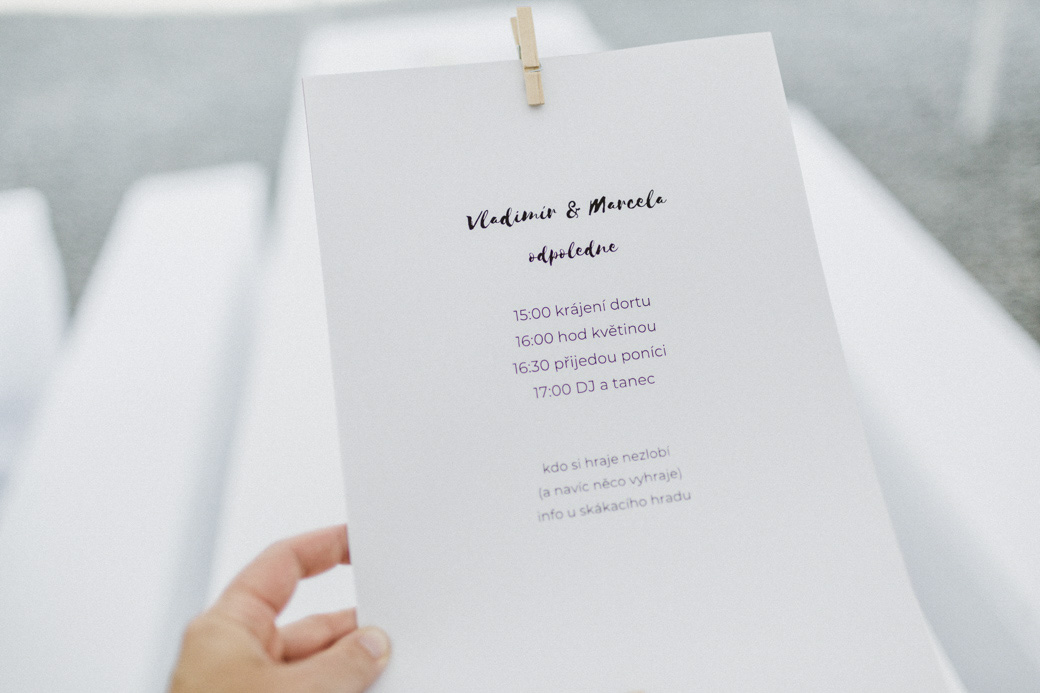 Vladimír & Marcela
odpoledne
15:00 krájení dortu
16:00 hod květinou
16:30 přijedou poníci
17:00 DJ a tanec
kdo si hraje nezlobí
(a navíc něco vyhraje)
info u skákacího hradu